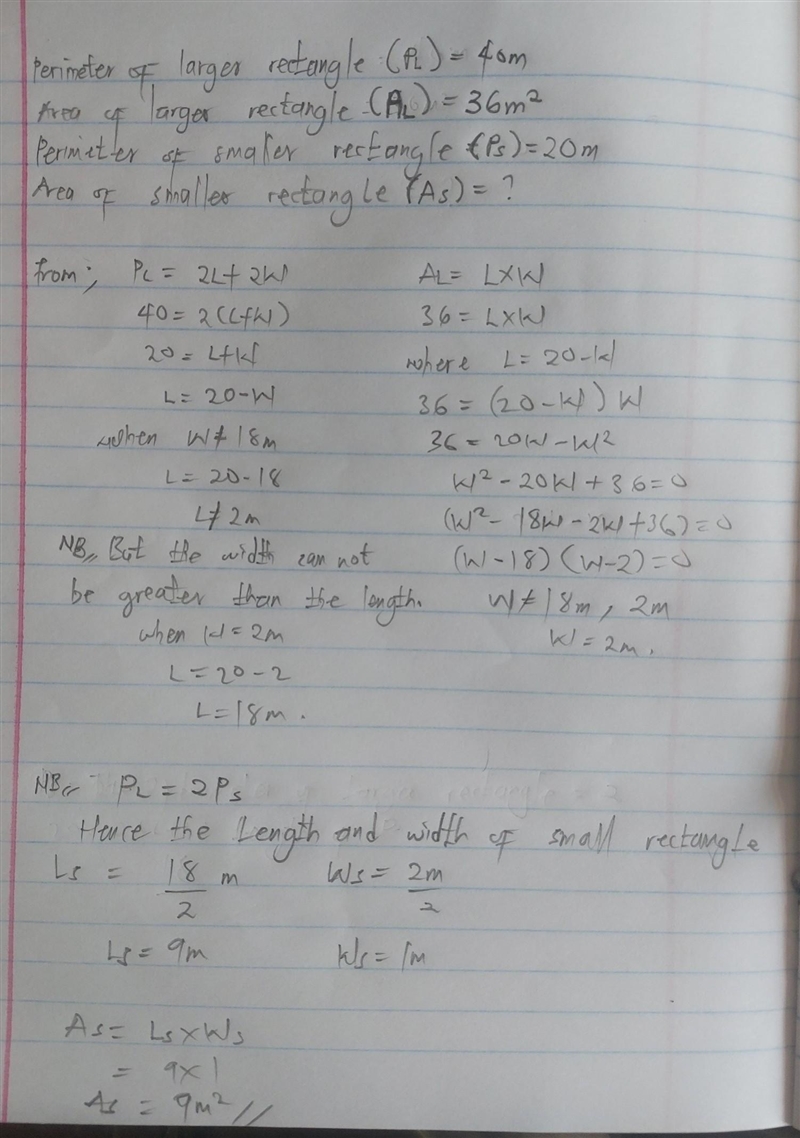 Perimeter of larger rectangle (PL) = 40m
Area of larger rectangle (AL) = 36m²
Perimeter of smaller rectangle (Ps) = 20m
Area of smaller rectangle (As) = ?
from; PL = 2L + 2W
40 = 2(L+W)
20 = L+W
L = 20-W
when W ≠ 18m
L = 20-18
L ≠ 2m
NB,, But the width can not
be greater than the length.
when W = 2m
L = 20-2
L = 18m.
AL = L×W
36 = L×W
where L = 20-W
36 = (20-W) W
36 = 20W-W²
W² - 20W + 36 = 0
(W² - 18W - 2W + 36) = 0
(W-18) (W-2) = 0
W ≠ 18m, 2m
W = 2m.
NB,, PL = 2Ps
Hence the Length and width of small rectangle
Ls = 18/2 m Ws = 2m/2
Ls = 9m Ws = 1m
As = Ls × Ws
= 9×1
As = 9m² //